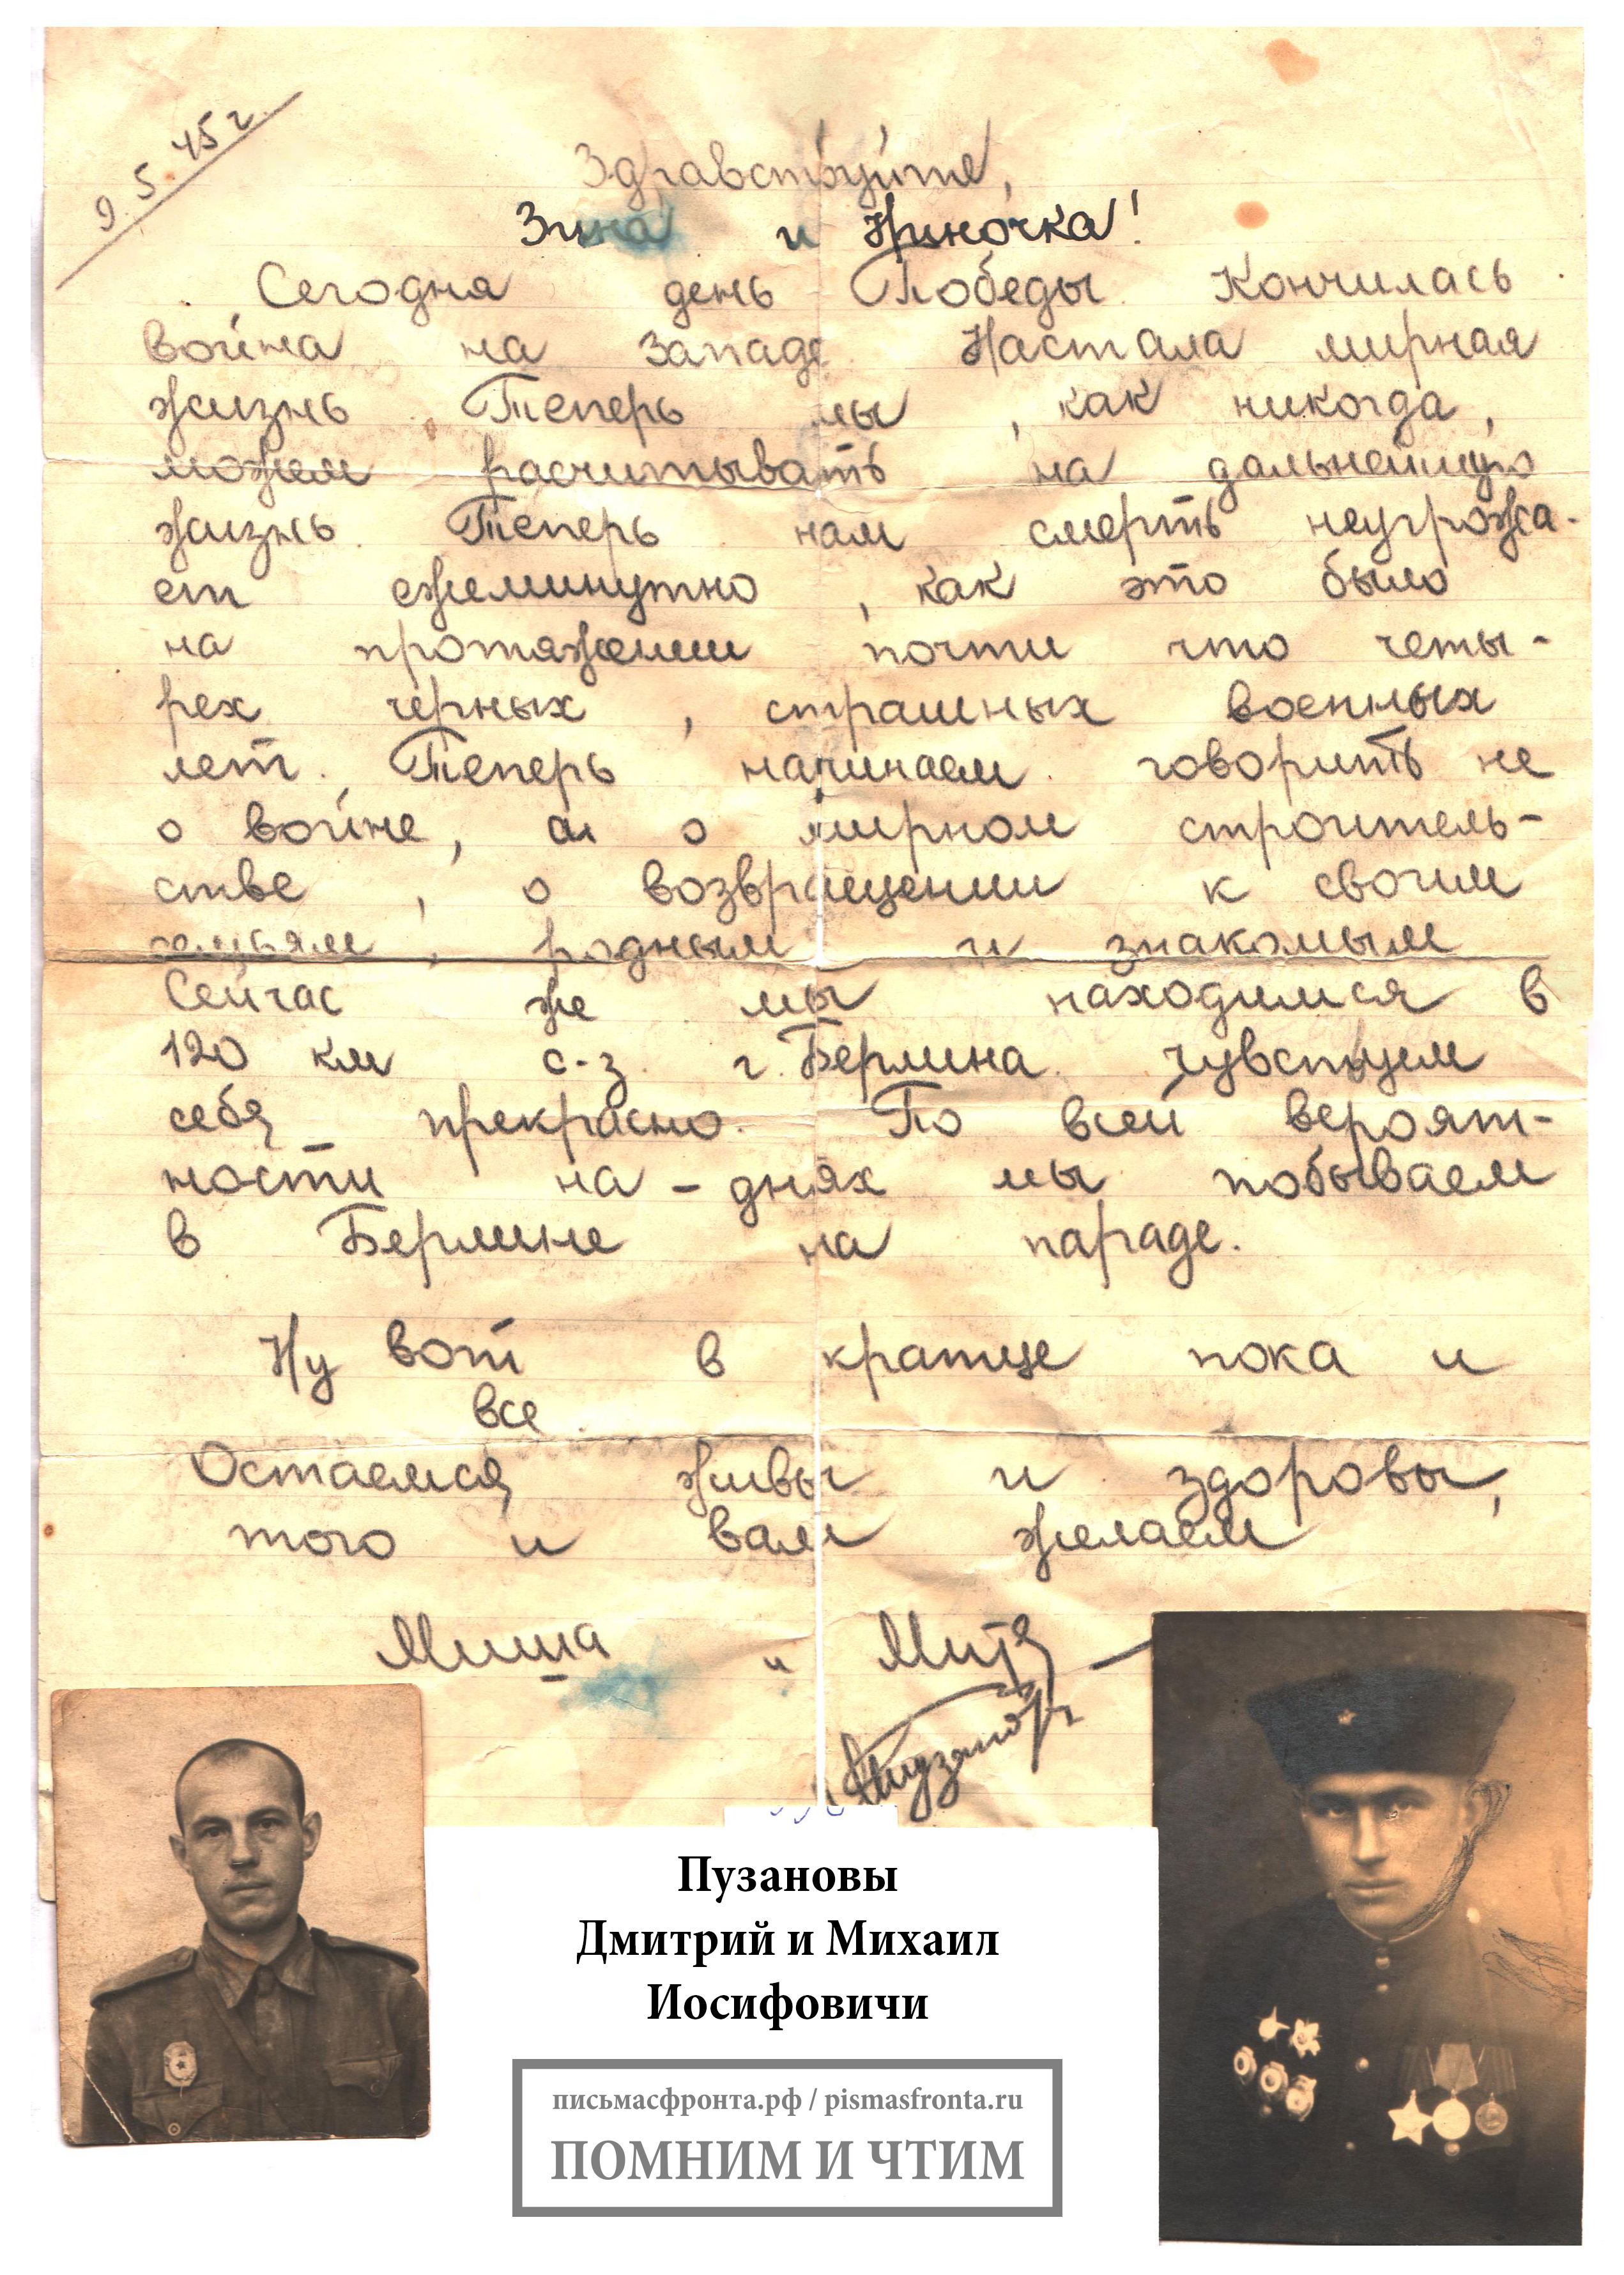 9.5.45 г.
Здравствуйте,
Зина и Ниночка!
Сегодня день Победы. Кончилась
война на западе. Настала мирная
жизнь. Теперь мы, как никогда,
можем расчитывать на дальнейшую
жизнь. Теперь нам смерть неугрожа-
ет ежеминутно, как это было
на протяжении почти что четы-
рех черных, страшных военных
лет. Теперь начинаем говорить не
о войне, а о мирном строитель-
стве, о возвращении к своим
семьям, родным и знакомым
Сейчас же мы находимся в
120 км с-з. г. Берлина. чувствуем
себя прекрасно. По всей вероят-
ности на-днях мы побываем
в Берлине на параде.
Ну вот в кратце пока и
все.
Остаемся живы и здоровы,
того и вам желаем
Миша и Митя
Пузановы
Пузановы
Дмитрий и Михаил
Иосифовичи
письмасфронта.рф / pismasfronta.ru
ПОМНИМ И ЧТИМ